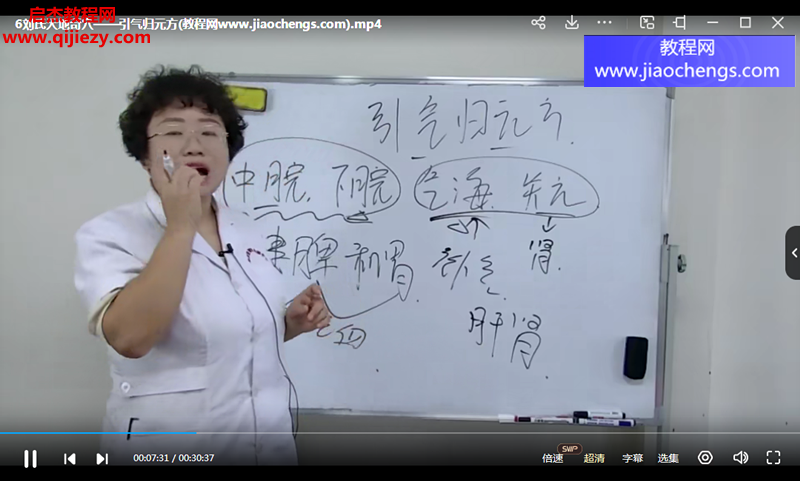 6刘氏天地奇穴——引气归元方(教程网www.jiaochengs.com).mp4
启杰教程网
www.qijiezy.com
教程网
www.jiaochengs.com
引气归元方
中脘、下脘 气海、关元
脾 和胃 补气 肾
肝肾
00:07:31 / 00:30:37
倍速 SWP 超清 字幕 选集